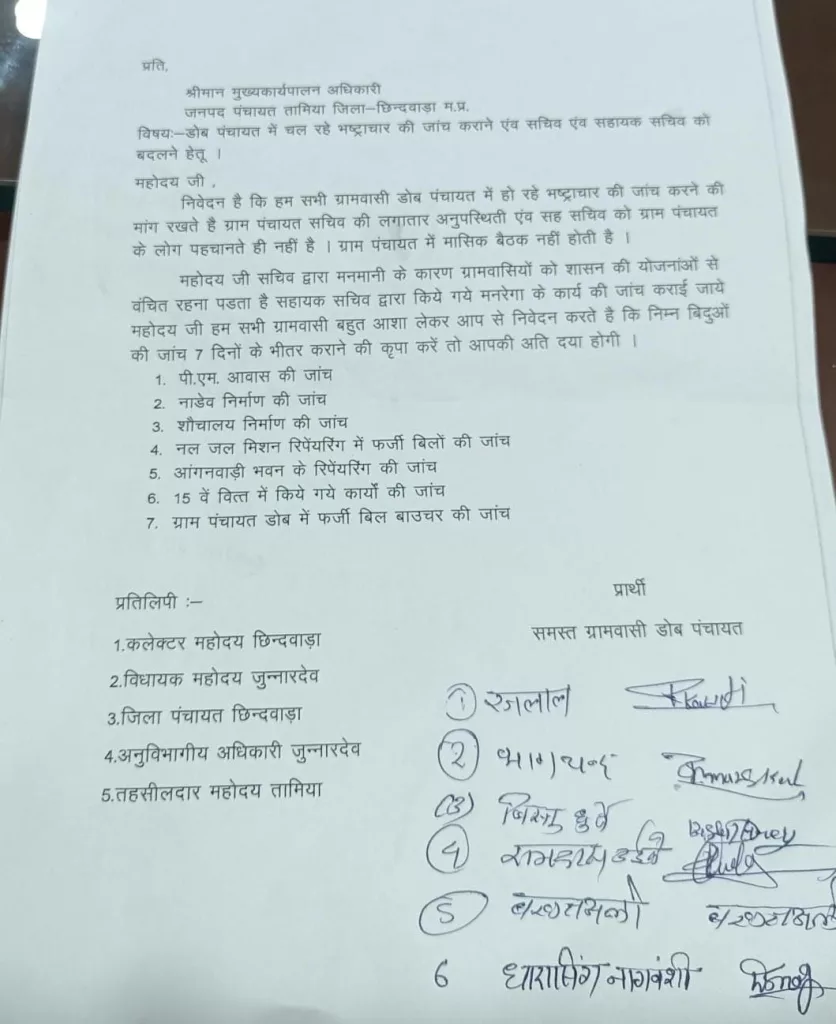 प्रति,
श्रीमान मुख्यकार्यपालन अधिकारी
जनपद पंचायत तामिया जिला–छिन्दवाड़ा म.प्र.
विषय:–डोब पंचायत में चल रहे भष्ट्राचार की जांच कराने एंव सचिव एंव सहायक सचिव को
बदलने हेतू ।
महोदय जी ,
निवेदन है कि हम सभी ग्रामवासी डोब पंचायत में हो रहे भष्ट्राचार की जांच करने की
मांग रखते है ग्राम पंचायत सचिव की लगातार अनुपस्थिती एंव सह सचिव को ग्राम पंचायत
के लोग पहचानते ही नहीं है । ग्राम पंचायत में मासिक बैठक नहीं होती है ।
महोदय जी सचिव द्वारा मनमानी के कारण ग्रामवासियों को शासन की योजनांओं से
वंचित रहना पडता है सहायक सचिव द्वारा किये गये मनरेगा के कार्य की जांच कराई जाये
महोदय जी हम सभी ग्रामवासी बहुत आशा लेकर आप से निवेदन करते है कि निम्न बिदुओं
की जांच 7 दिनों के भीतर कराने की कृपा करें तो आपकी अति दया होगी ।
1. पी.एम. आवास की जांच
2. नाडेव निर्माण की जांच
3. शौचालय निर्माण की जांच
4. नल जल मिशन रिपेंयरिंग में फर्जी बिलों की जांच
5. आंगनवाड़ी भवन के रिपेंयरिंग की जांच
6. 15 वें वित्त में किये गये कार्यो की जांच
7. ग्राम पंचायत डोब में फर्जी बिल बाउचर की जांच
प्रार्थी
समस्त ग्रामवासी डोब पंचायत
प्रतिलिपी :–
1.कलेक्टर महोदय छिन्दवाड़ा
2.विधायक महोदय जुन्नारदेव
3.जिला पंचायत छिन्दवाड़ा
4.अनुविभागीय अधिकारी जुन्नारदेव
5.तहसीलदार महोदय तामिया
1
2 भागचन्द
(3)
4
5
6 धारासिंग नागवंशी